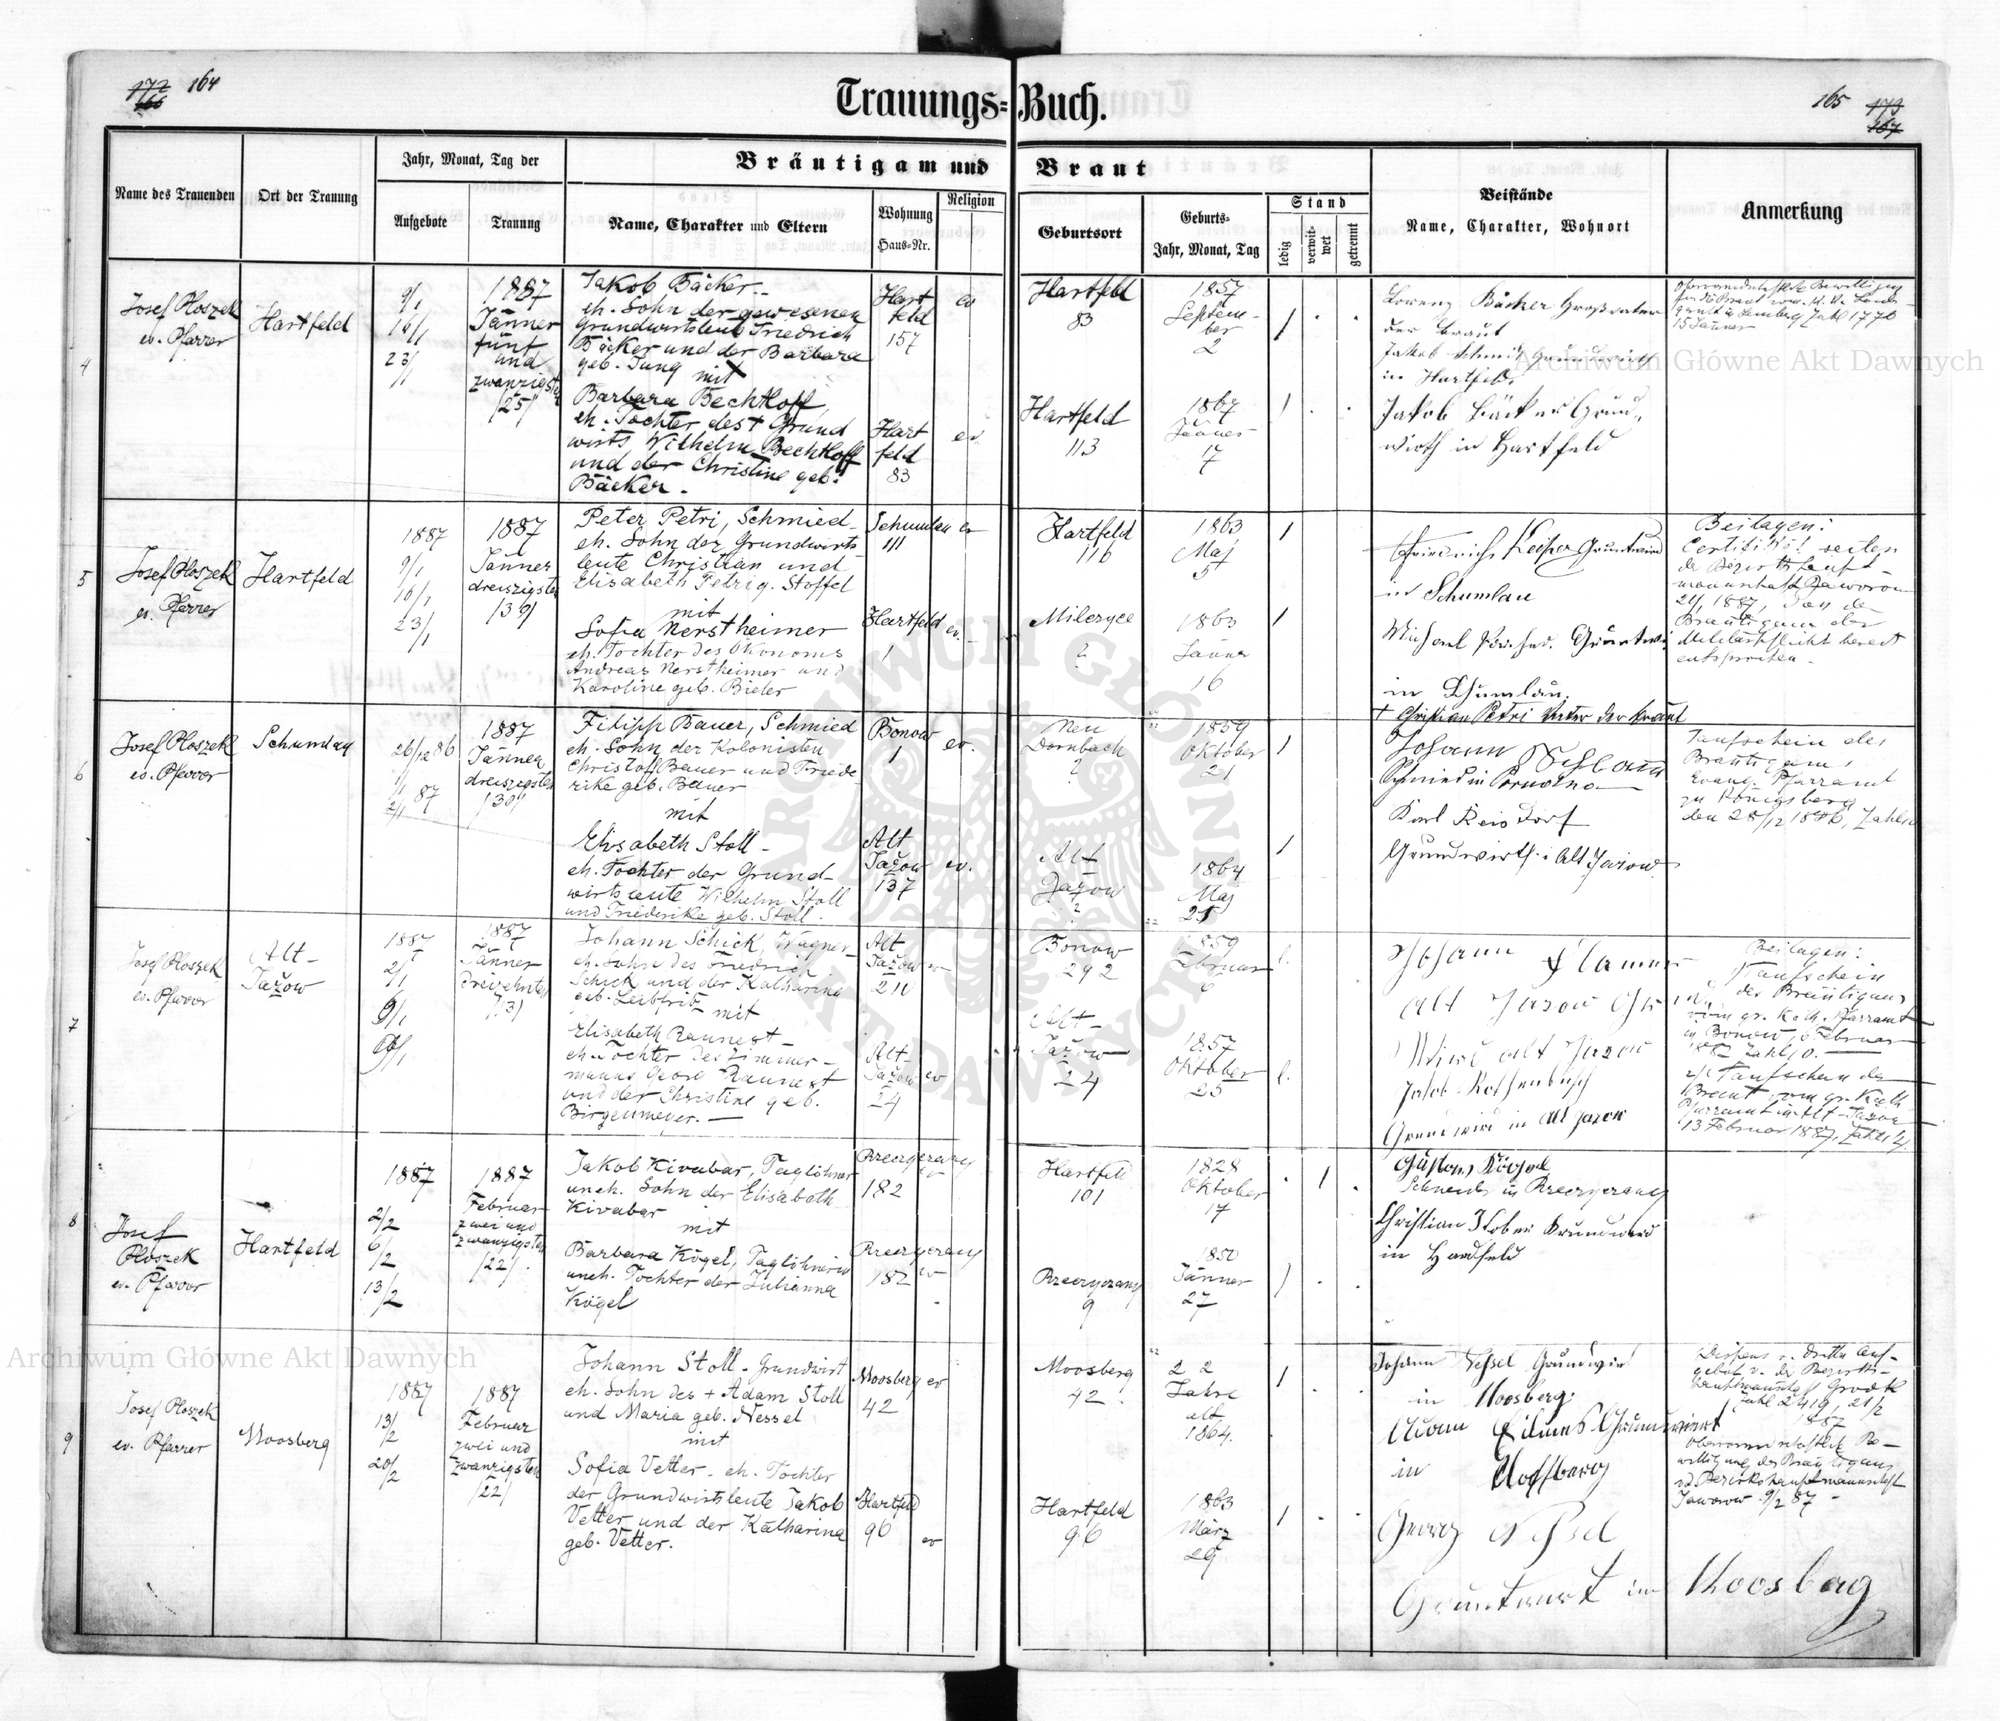 172
166
164
Trauungs=Buch.
165
173
167
Name des Trauenden
Ort der Trauung
Jahr, Monat, Tag der
Aufgebote
Trauung
Bräutigam und Braut
Name, Charakter und Eltern
Wohnung
Haus=Nr.
Religion
Geburtsort
Geburts=
Jahr, Monat, Tag
Stand
ledig
verwit-
wet
getrennt
Beistände
Name, Charakter, Wohnort
Anmerkung
4
Josef Ploszek
ev. Pfarrer
Hartfeld
9/1
16/1
23/1
1887
Jänner
fünf
und
zwanzigsten
/25/
Jakob Bäcker
eh. Sohn der gewesenen
Grundwirtsleute Friedrich
Bäcker und der Barbara
geb. Jung mit
Barbara Bechtloff
eh. Tochter des + Grund
wirts Wilhelm Bechtloff
und der Christine geb.
Bäcker.
Hart
feld
157
ev
Hart
feld
83
ev.
Hartfeld
83
1857
Septem-
ber
2
Hartfeld
113
1867
Jänner
17
Lorenz Bäcker Großvater
der Braut
Jakob Schmidt Grundwirth
in Hartfeld
Jakob Bäcker Grund-
wirth in Hartfeld
15 Jänner
5
Josef Ploszek
ev. Pfarrer
Hartfeld
1887
9/1
16/1
23/1
1887
Jänner
dreiszigsten
/30/
Peter Petri, Schmied
eh. Sohn der Grundwirts
leute Christian und
Elisabeth Petri g. Stoffel
mit
Sofia Nerstheimer
eh. Tochter des Ökonoms
Andreas Nerstheimer und
Karoline geb. Bieler
Schumlau
111
ev
Hartfeld
1
ev.
Hartfeld
116
1863
Maj
5
Milczyce
?
1863
Jänner
16
in Schumlau
in Schumlau.
+ Christian Petri Vater der Braut
Beilagen:
Certifikat seitens
der Bezirkshaupt-
mannschaft Jaworow
21/1 1887, dass der
Bräutigam der
Militärpflicht bereit
entsprochen.
6
Josef Ploszek
ev. Pfarrer
Schumlau
26/12 86
1/1
2/1 87
1887
Jänner
dreiszigsten
/30/
Filipp Bauer, Schmied
eh. Sohn der Kolonisten
Christoff Bauer und Friede
rike geb. Bauer
mit
Elisabeth Stoll
eh. Tochter der Grund-
wirtsleute Wilhelm Stoll
und Friederike geb. Stoll.
Bonow
1
ev.
Alt
Jažow
137
ev.
Neu
Dornbach
?
1859
Oktober
21
Alt
Jažow
?
1864
Maj
25
Johann
Schmied in
Karl Reisdorf
Grundwirth i Alt Jazow
Taufschein des
Bräutigams
Evang. Pfarramt
zu Königsberg
den 28/12 1886, Zahl
7
Josef Ploszek
ev. Pfarrer
Alt-
Jažow
1887
2/1
9/1
16/1
1887
Jänner
dreizehnten
/13/
Johann Schick, Wagner
eh. Sohn des Friedrich
Schick und der Katharina
geb. Leibfrit
mit
Elisabeth Raunest
eh. Tochter des Zimmer-
manns Georg Raunest
und der Christine geb.
Birgenmeyer.
Alt
Jažow
210
ev
Alt-
Jažow
24
ev
Bonow
292
1859
Februar
6
l.
Alt-
Jažow
24
1857
Oktober
25
l.
Johann
Alt Jazow
Alt Jazow
Jakob Rothenbusch
Grundwird in Alt Jazow
Beilagen:
Taufschein
des Bräutigams
vom gr. Kath. Pfarramt
in Bonow 6 Februar
2/ Taufschein der
Braut vom gr. Kath.
Pfarramt in Alt-Jazow
13 Februar 1887, Zahl
8
Josef
Ploszek
ev. Pfarrer
Hartfeld
1887
2/2
6/2
13/2
1887
Februar
zwei und
zwanzigsten
/22/
Jakob Kivabar, Taglöhner
uneh. Sohn der Elisabeth
Kivabar
mit
Barbara Kögel, Taglöhnerin
uneh. Tochter der Julianna
Kögel
182
ev
182
ev
Hartfeld
101
1828
Oktober
17
9
1850
Jänner
27
Gustav Kögel
Christian Stober Grundwird
in Hardfeld
9
Josef Ploszek
ev. Pfarrer
Moosberg
1887
13/2
20/2
1887
Februar
zwei und
zwanzigsten
/22/
Johann Stoll - Grundwirt
eh. Sohn des + Adam Stoll
und Maria geb. Nessel
mit
Sofia Vetter. eh. Tochter
der Grundwirtsleute Jakob
Vetter und der Katharina
geb. Vetter.
Moosberg
42
ev
Hartfeld
96
ev
Moosberg
42
22
Jahre
alt
1864.
Hartfeld
96
1863
März
29
Johann Nessel Grundwirt
in Moosberg
Adam
in Moosberg
Georg Nessel
Gruntwirt in Moosberg
Dispens v. dritten Auf-
gebot v. der Bezirks-
hauptmannschaft Grodek
Zahl 2419, 21/2
1887
Obervormundschaftliche Be-
willigung des Bräutigams
v. d. Bezirkshauptmannschaft
Jaworow 9/2 87
Archiwum Główne Akt Dawnych
Archiwum Główne Akt Dawnych
ARCHIWUM GŁÓWNE AKT DAWNYCH